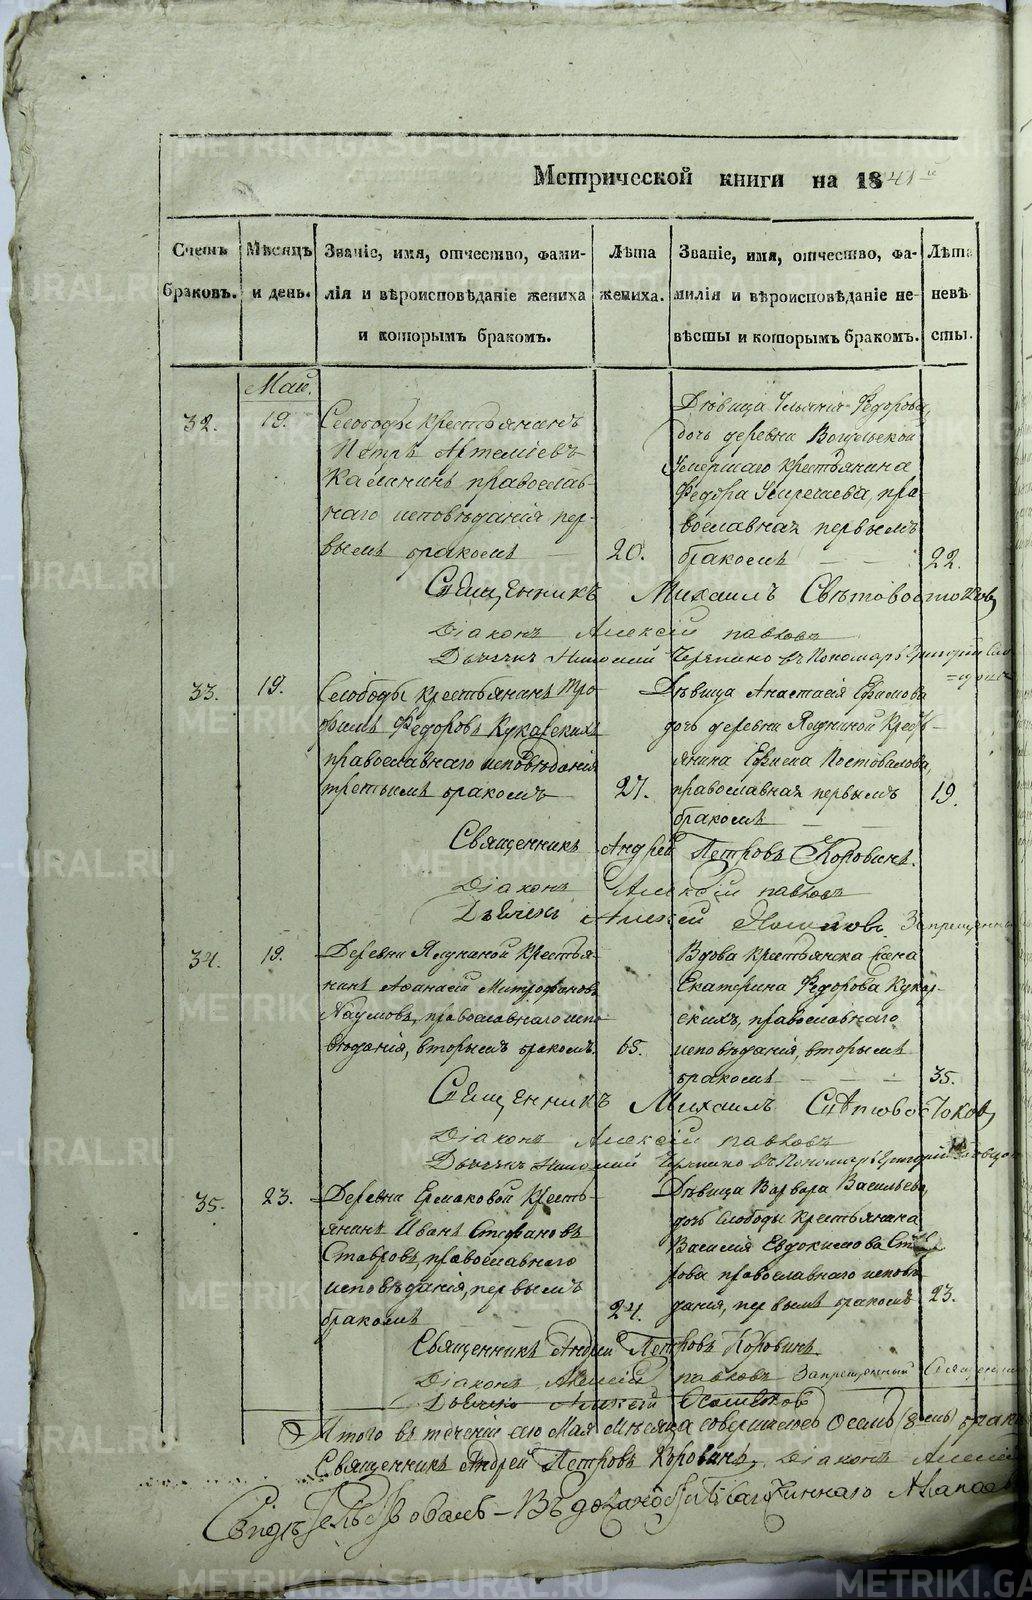 Метрической книги на 1841й
Счетъ браковъ.
Мѣсяцъ и день.
Званіе, имя, отчество, фами-
лія и вѣроисповѣданіе жениха
и которымъ бракомъ.
Лѣта жениха.
Званіе, имя, отчество, фа-
милія и вѣроисповѣданіе не-
вѣсты и которымъ бракомъ.
Лѣта невѣ
сты.
Май.
32.
19.
Слободы крестьянинъ
Петръ Артеміевъ
Калининъ православ-
наго исповѣданія пер-
вымъ бракомъ
20.
Дѣвица Ульянія Ѳедорова,
дочь деревни
умершаго крестьянина
Ѳедора пра-
вославная первымъ
бракомъ
22.
Священникъ Михаилъ Свѣтовостоковъ
Діаконъ Алексій Павловъ
Дьячекъ Николай Черпино въ Пономарь Григорій
33.
19.
Слободы крестьянинъ Тро-
фимъ Ѳедоровъ Кукарскихъ
православнаго исповѣданія
третьимъ бракомъ
27.
Дѣвица Анастасія Ефимова
дочь деревни Ялуниной крест-
янина Ефима Постовалова,
православная первымъ
бракомъ
19.
Священникъ Андрей Петровъ Коровинъ.
Діаконъ Алексій Павловъ
Дьячекъ Алексей
34.
19.
Деревни Ялуниной крестья-
нинъ Аѳанасій Митрофановъ
Наумовъ, православнаго испо-
вѣданія, вторымъ бракомъ.
65.
Вдова крестьянска жена
Екатерина Ѳедорова Кукар-
скихъ, православнаго
исповѣданія, вторымъ
бракомъ
35.
Священникъ Михаилъ Свѣтовостоковъ
Діаконъ Алексій Павловъ
Дьячекъ Николай Черпино въ Пономарь Григорій
35.
23.
Деревни Ермаковой кресть-
янинъ Иванъ Стефановъ
Ставровъ, православнаго
исповѣданія, первымъ
бракомъ
24.
Дѣвица Варвара Васильева,
дочь слободы крестьянина
Василія Евдокимова
рова православнаго исповѣ
данія, первымъ бракомъ
23.
Священникъ Андрей Петровъ Коровинъ
Діаконъ Алексій Павловъ Запрещенный Священникъ
Дьячекъ Алексей
Итого въ теченіи сего Мая мѣсяца совершилось осьмь (8мь) брако
Священникъ Андрей Петровъ Коровинъ, Діаконъ Алексій
Свидѣтельствовалъ въ должности Благочиннаго
METRIKI.GASO-URAL.RU